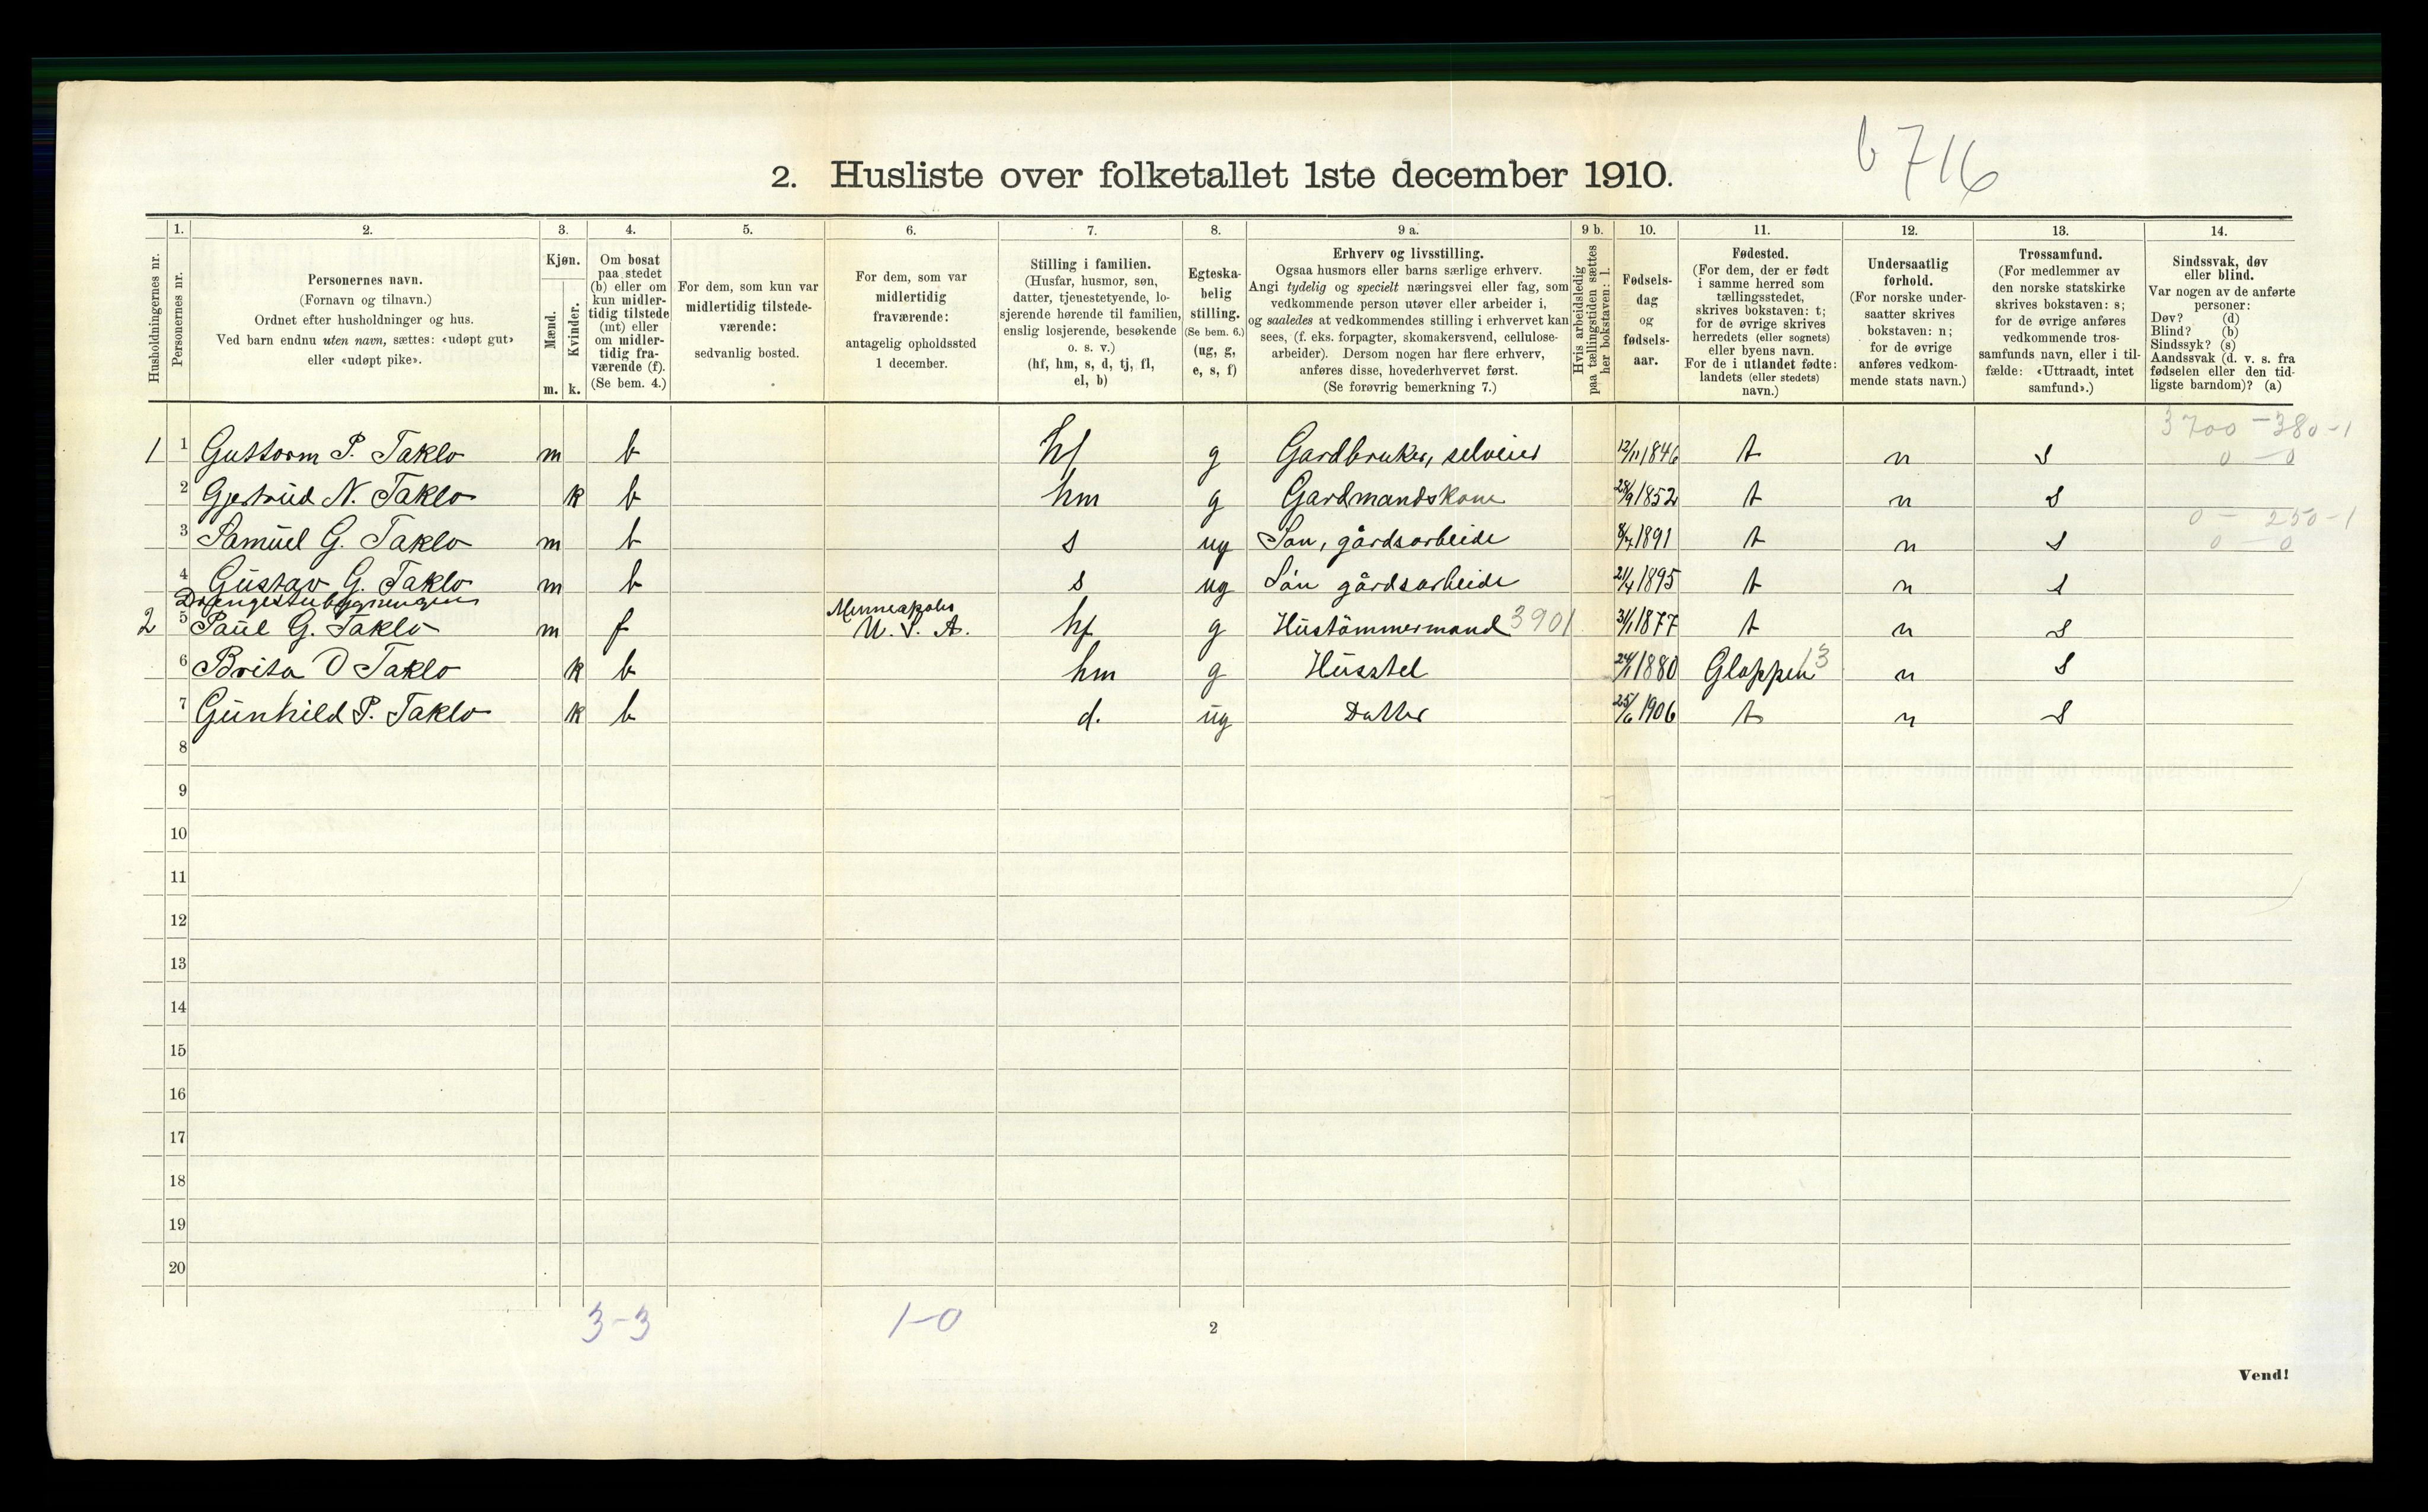 6716
2. Husliste over folketallet 1ste december 1910.
Husholdningernes nr.
1.
Personernes nr.
2.
Personernes navn.
(Fornavn og tilnavn.)
Ordnet efter husholdninger og hus.
Ved barn endnu uten navn, sættes: «udøpt gut»
eller «udøpt pike».
3.
Kjøn.
Mænd.
Kvinder.
m. k.
4.
Om bosat
paa stedet
(b) eller om
kun midler-
tidig tilstede
(mt) eller
om midler-
tidig fra-
værende (f).
(Se bem. 4.)
5.
For dem, som kun var
midlertidig tilstede-
værende:
sedvanlig bosted.
6.
For dem, som var
midlertidig
fraværende:
antagelig opholdssted
1 december.
7.
Stilling i familien.
(Husfar, husmor, søn,
datter, tjenestetyende, lo-
sjerende hørende til familien,
enslig losjerende, besøkende
o. s. v.)
(hf, hm, s, d, tj, fl,
el, b)
8.
Egteska-
belig
stilling.
(Se bem. 6.)
(ug, g,
e, s, f)
9 a.
Erhverv og livsstilling.
Ogsaa husmors eller barns særlige erhverv.
Angi tydelig og specielt næringsvei eller fag, som
vedkommende person utøver eller arbeider i,
og saaledes at vedkommendes stilling i erhvervet kan
sees, (f. eks. forpagter, skomakersvend, cellulose-
arbeider). Dersom nogen har flere erhverv,
anføres disse, hovederhvervet først.
(Se forøvrig bemerkning 7.)
9 b.
Hvis arbeidsledig
paa tællingstiden sættes
her bokstaven: l.
10.
Fødsels-
dag
og
fødsels-
aar.
11.
Fødested.
(For dem, der er født
i samme herred som
tællingsstedet,
skrives bokstaven: t;
for de øvrige skrives
herredets (eller sognets)
eller byens navn.
For de i utlandet fødte:
landets (eller stedets)
navn.)
12.
Undersaatlig
forhold.
(For norske under-
saatter skrives
bokstaven: n;
for de øvrige
anføres vedkom-
mende stats navn.)
13.
Trossamfund.
(For medlemmer av
den norske statskirke
skrives bokstaven: s;
for de øvrige anføres
vedkommende tros-
samfunds navn, eller i til-
fælde: «Uttraadt, intet
samfund».)
14.
Sindssvak, døv
eller blind.
Var nogen av de anførte
personer:
Døv? (d)
Blind? (b)
Sindssyk? (s)
Aandssvak (d. v. s. fra
fødselen eller den tid-
ligste barndom)? (a)
3700 - 380 - 1
1 1 Guttorm P. Taklo m b hf g Gardbruker, selveier 12/11 1846 t n s 0 - 0
2 Gjertrud N. Taklo k b hm g Gardmandskone 28/9 1852 t n s
0 - 250 - 1
3 Samuel G. Taklo m b s ug Søn, gårdsarbeide 8/7 1891 t n s 0 - 0
4 Gustav G. Taklo m b s ug Søn gårdsarbeide 21/4 1895 t n s
Drengestubygningen
Minneapolis
2 5 Paul G. Taklo m f U. S. A. hf g Hustømmermand 3901 31/1 1877 t n s
6 Brita O Taklo k b hm g Husstel 24/1 1880 Gloppen 13 n s
7 Gunhild P. Taklo k b d. ug Datter 25/6 1906 t n s
8
9
10
11
12
13
14
15
16
17
18
19
20
3-3 1-0
2
Vend!